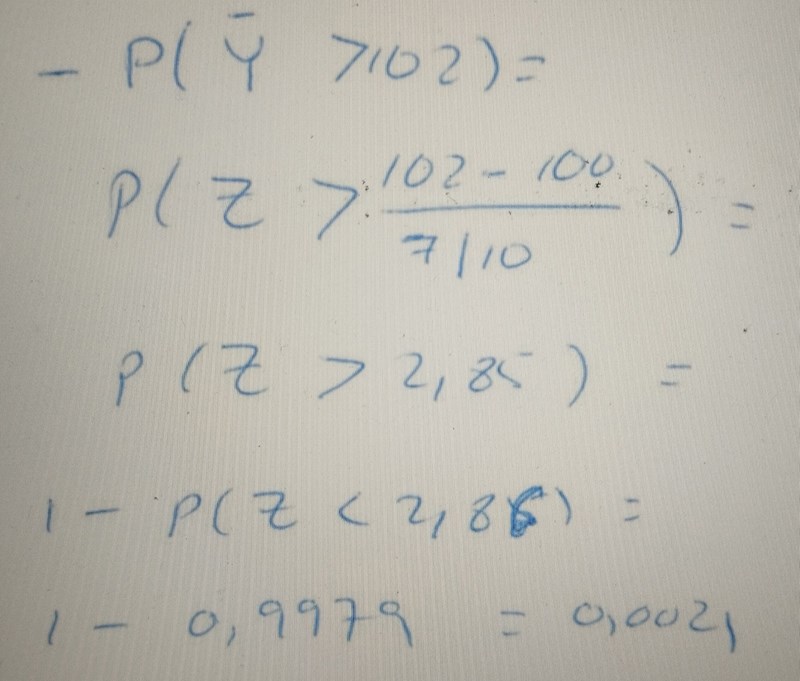 - P( Ȳ > 102) =
P( Z > (102 - 100)/(7/10) ) =
P ( Z > 2,85 ) =
1 - P( Z < 2,86) =
1 - 0,9979 = 0,0021